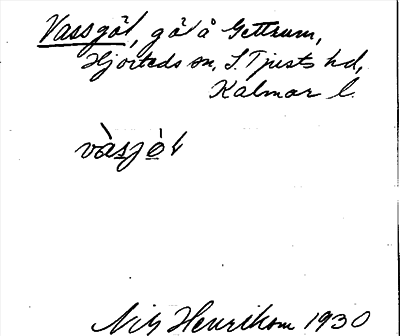 Vassgöl, göl å Gettrum,
Hjorteds sn, S. Tjusts hd,
Kalmar l.
vàsjö̀l
Nils Henrikson 1930